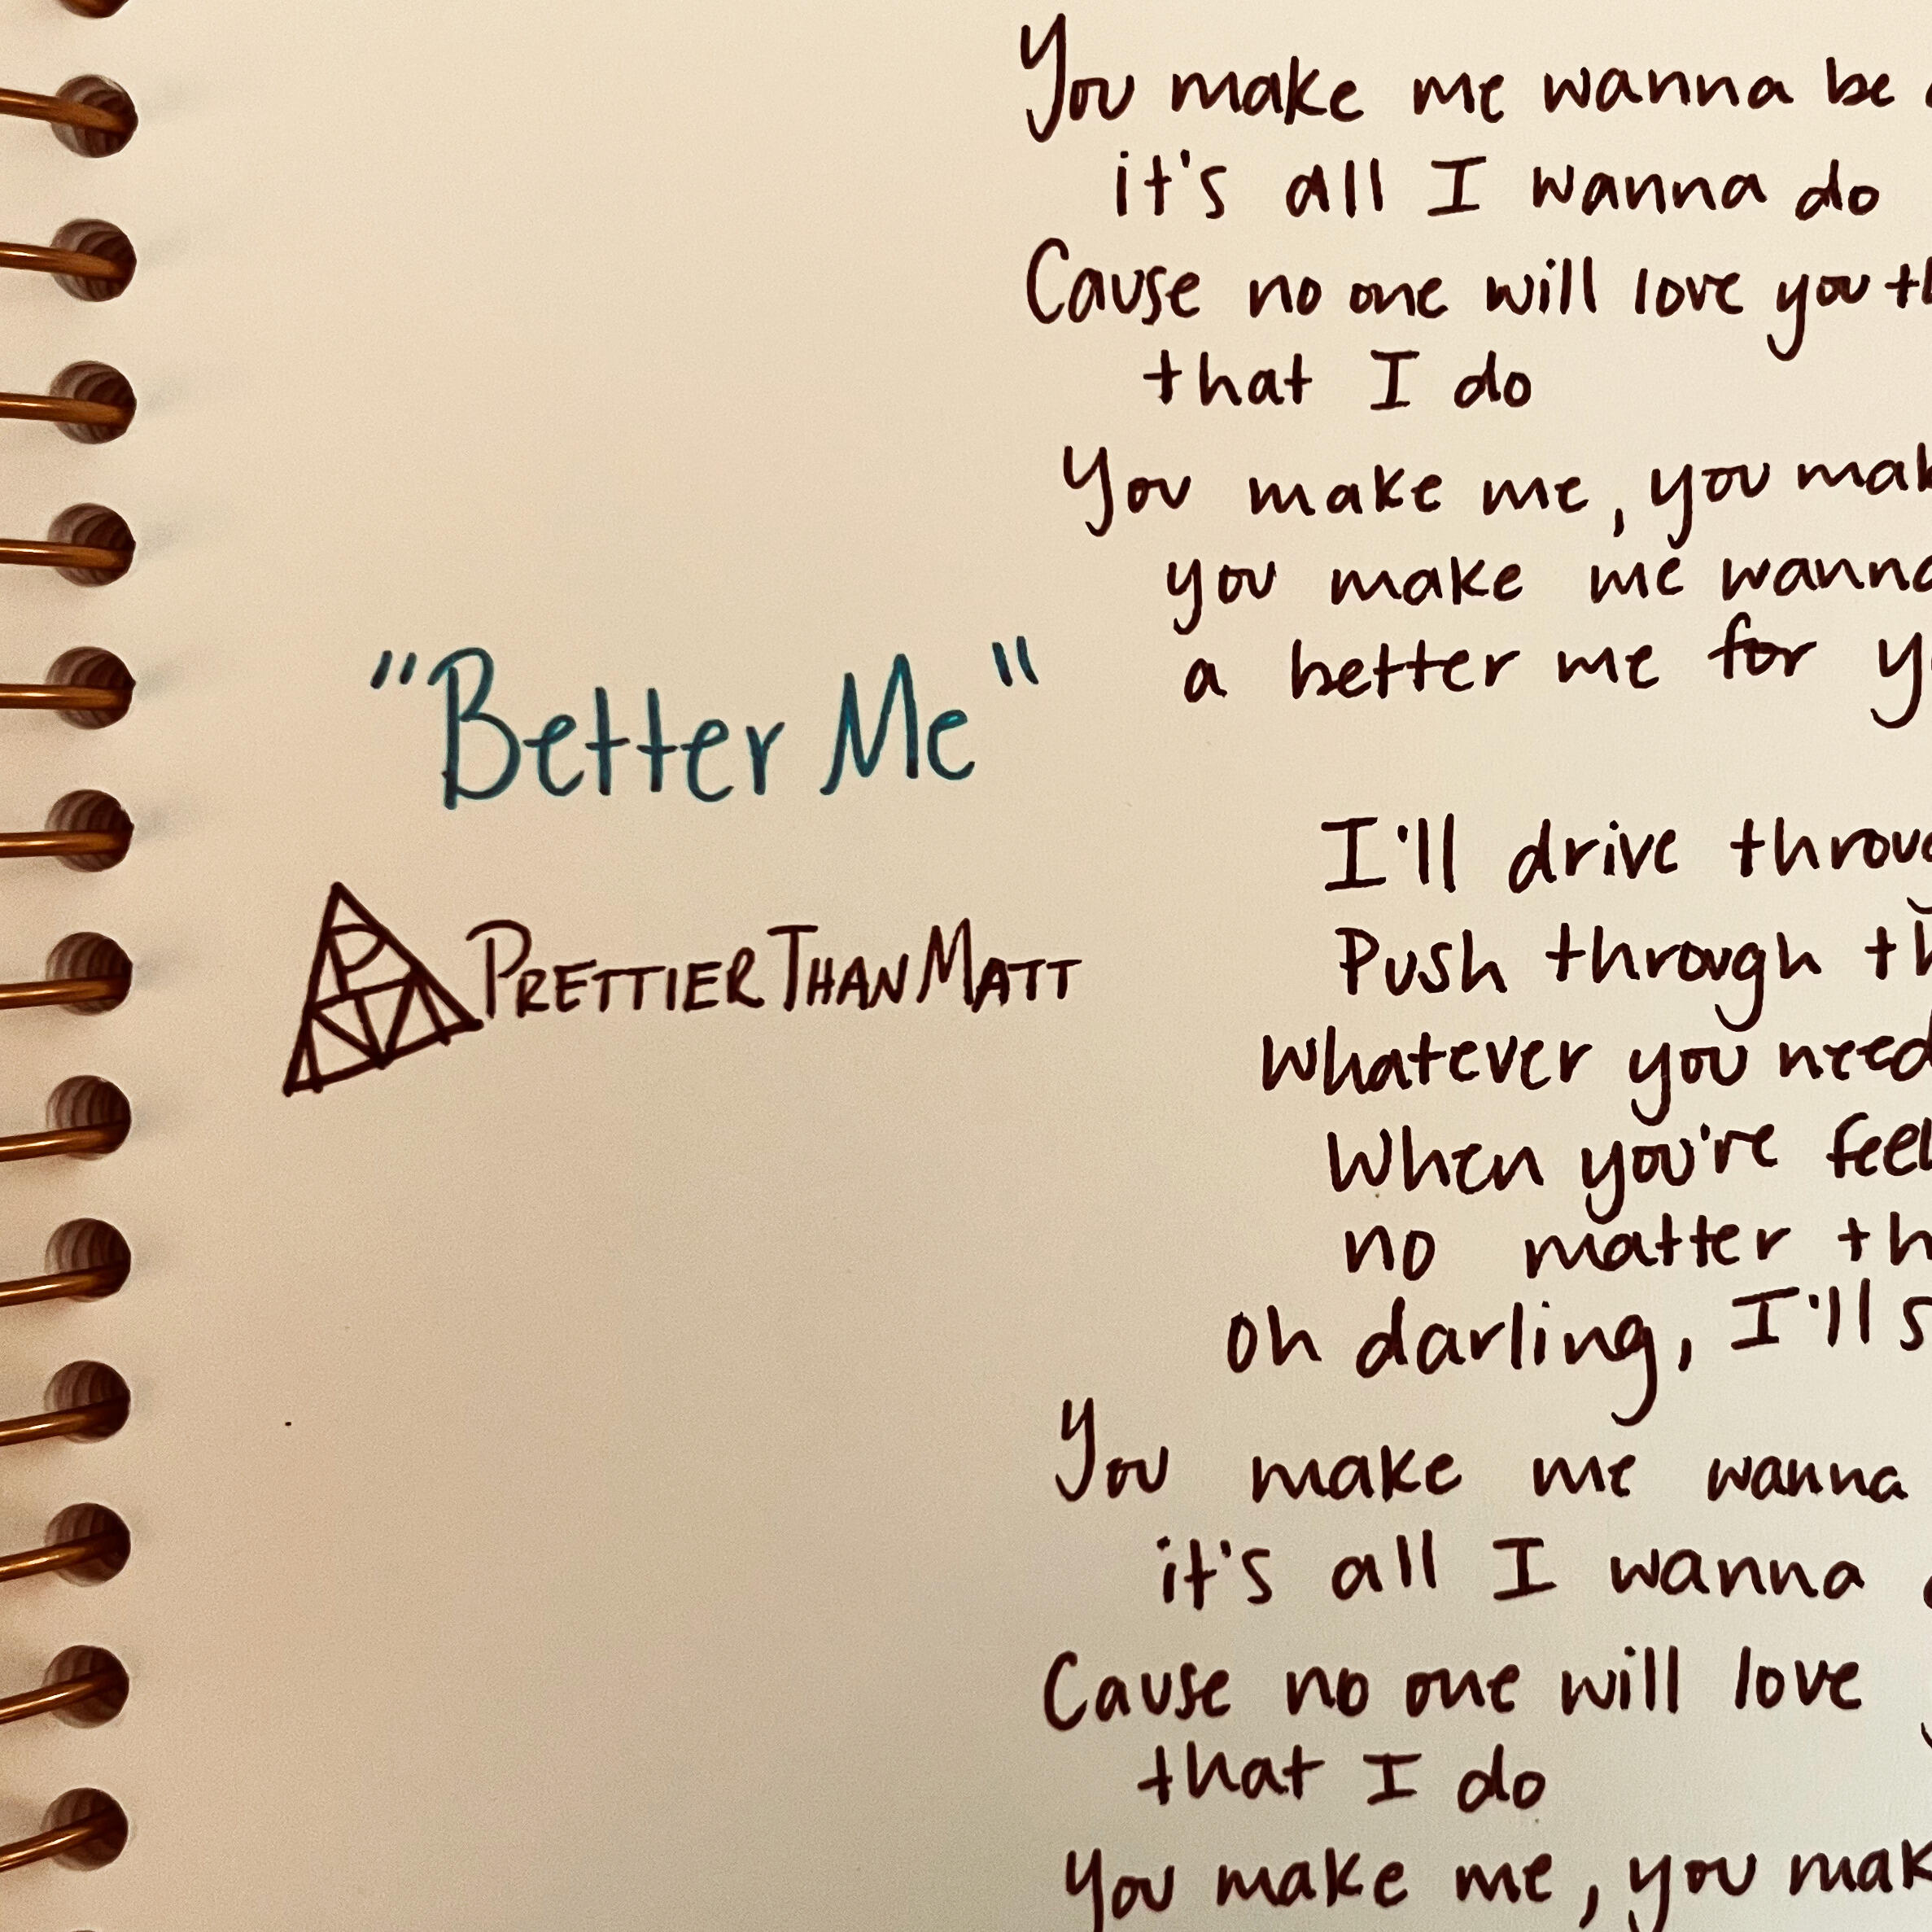 You make me wanna be
it's all I wanna do
Cause no one will love you th
that I do
You make me, you mak
you make me wanna
a better me for y
"Better Me"
PTM
PRETTIERTHANMATT
I'll drive throug
Push through th
Whatever you need
When you're feel
no matter th
oh darling, I'll s
You make me wanna
it's all I wanna
Cause no one will love
that I do
You make me, you mak